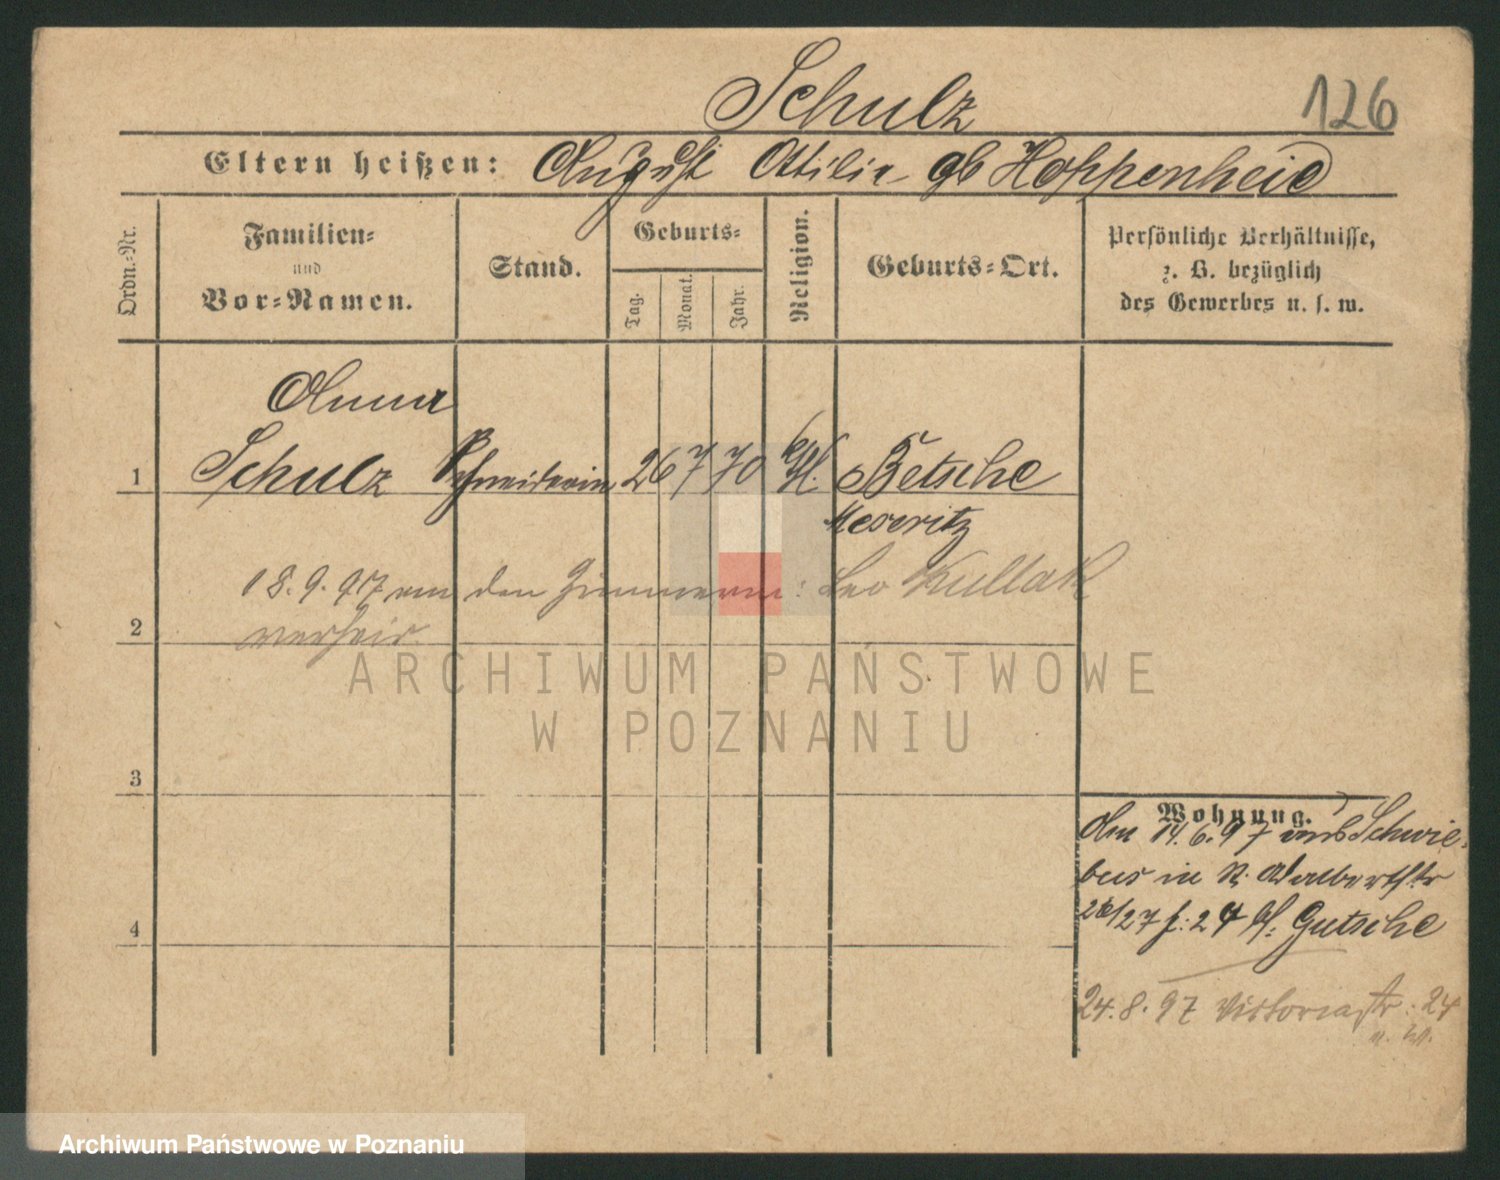 Schulz 126
Eltern heißen: August Ottilie gb Hoppenheid
Ordn.-Nr.
Familien-
und
Vor-Namen.
Stand.
Geburts-
Tag. Monat. Jahr.
Religion.
Geburts-Ort.
Persönliche Verhältnisse,
z. B. bezüglich
des Gewerbes u. s. w.
Anna
1 Schulz Schneiderin 26 7 70 Betsche
Meseritz
18.9.97 den Leo Kullak
2 verheir.
3
Wohnung.
Am 14.6.97 aus Schwie-
bus in St. Adalbertstr
26/27 b. Gutsche
4
24.8.97 Victoriastr. 24
ARCHIWUM PAŃSTWOWE
W POZNANIU
Archiwum Państwowe w Poznaniu